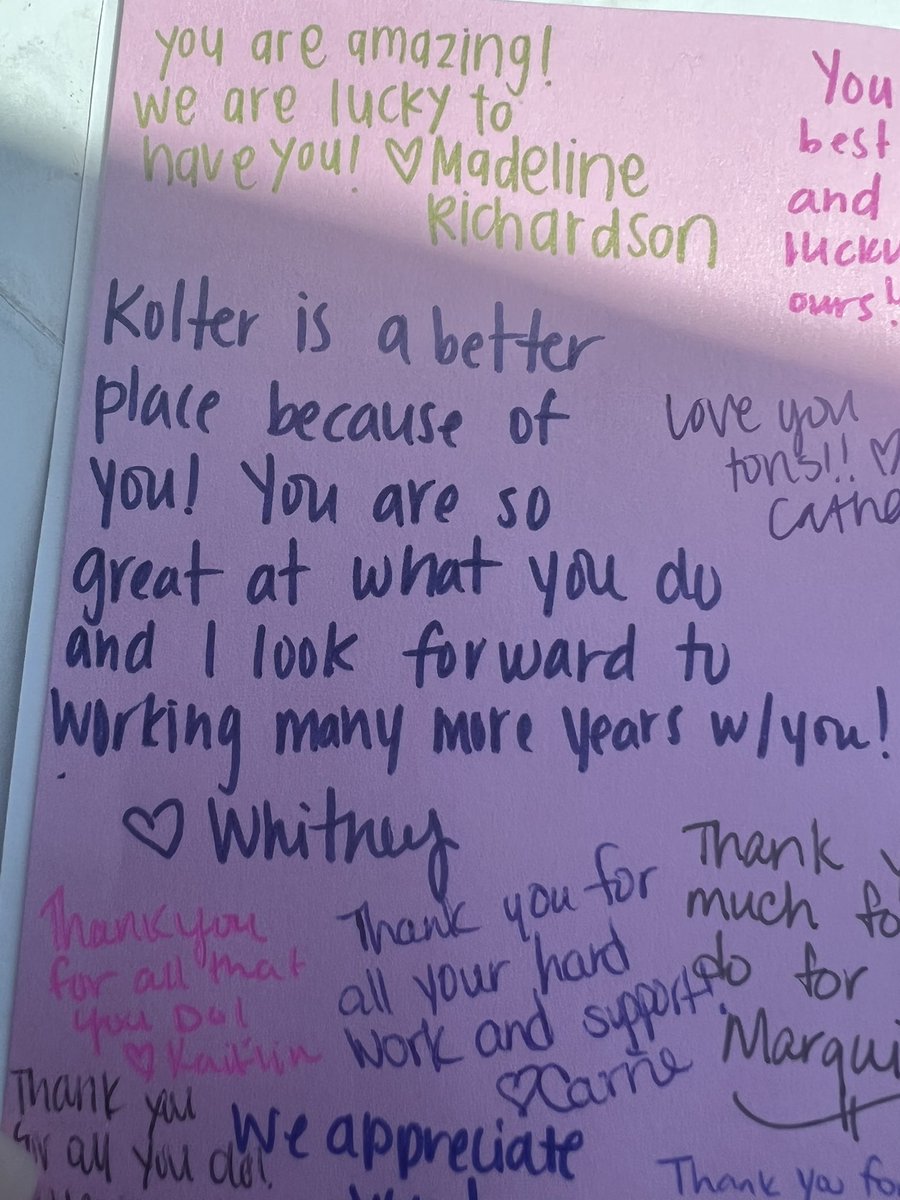 you are amazing!
we are lucky to
have you! ♡ Madeline
Richardson
You
best
and
lucky
ours!
Kolter is a better
place because of
you! You are so
great at what you do
and I look forward to
working many more years w/you!
♡ Whitney
Love you
tons!! ♡
Cathe
Thank you
for all that
you Do!
♡ Kaitlin
Thank you for
all your hard
work and support!
♡ Carrie
Thank
much fo
do for
Marqui
Thank you
for all you do!
We appreciate
Thank you fo